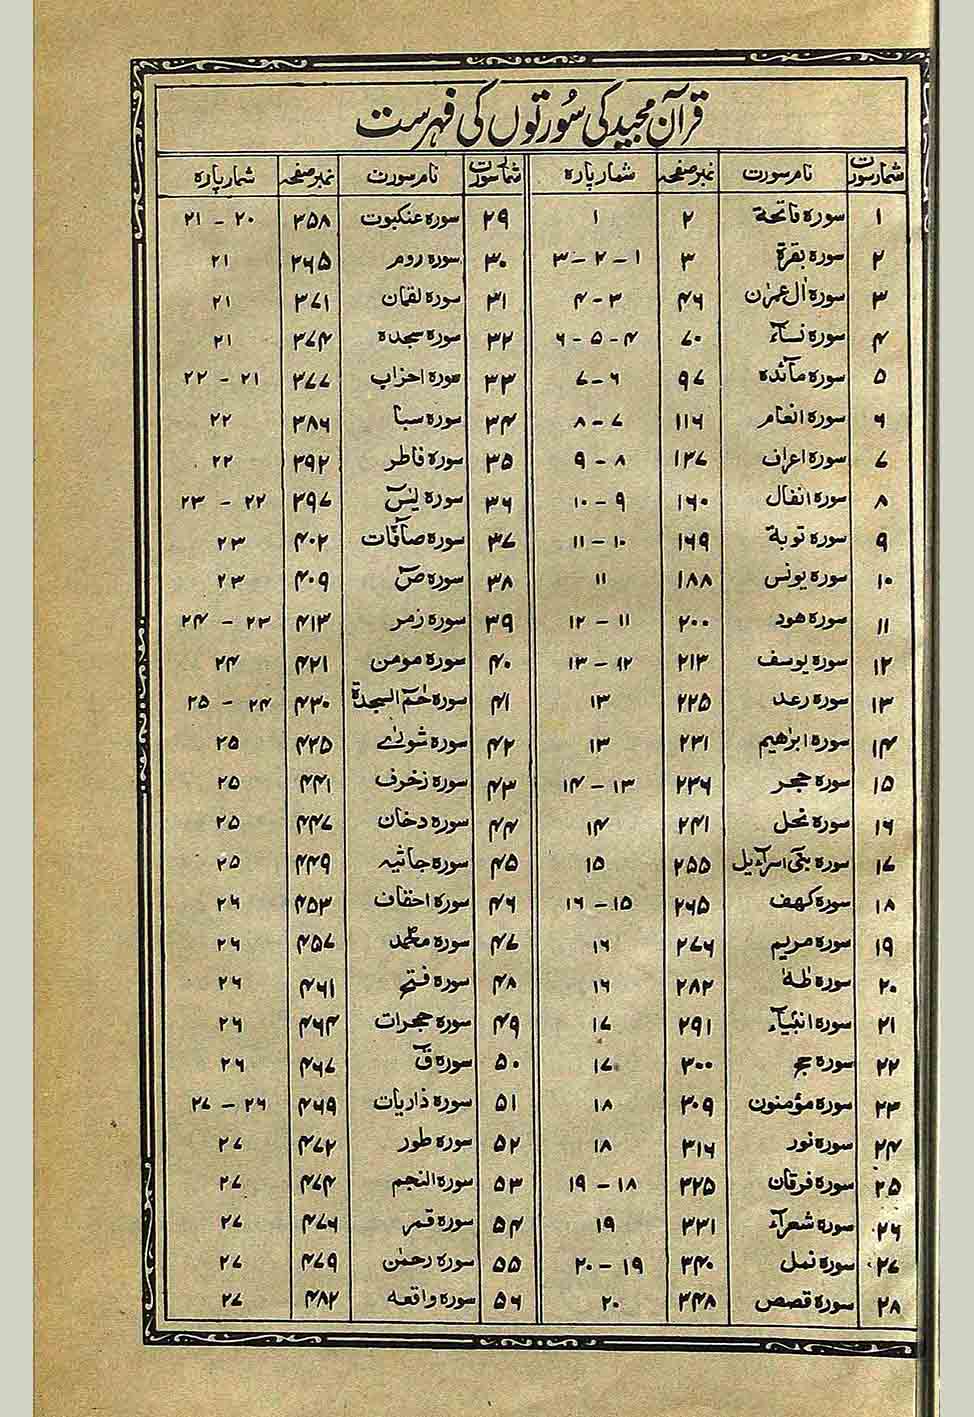 قرآن مجید کی سُورتوں کی فہرست
شمار سورت نام سورت نمبر صفحہ شمار پارہ شمار سورت نام سورت نمبر صفحہ شمار پارہ
۱ سورہ فاتحة ۲ ۱ ۲۹ سورہ عنکبوت ۳۵۸ ۲۰ - ۲۱
۲ سورہ بقرۃ ۳ ۱ - ۲ - ۳ ۳۰ سورہ روم ۳۶۵ ۲۱
۳ سورہ اٰل عمرٰن ۴۶ ۳ - ۴ ۳۱ سورہ لقمان ۳۷۱ ۲۱
۴ سورہ نسآء ۷۰ ۴ - ۵ - ۶ ۳۲ سورہ سجدہ ۳۷۴ ۲۱
۵ سورہ مآئدہ ۹۷ ۶ - ۷ ۳۳ سورہ احزاب ۳۷۷ ۲۱ - ۲۲
۶ سورہ انعام ۱۱۶ ۷ - ۸ ۳۴ سورہ سبا ۳۸۶ ۲۲
۷ سورہ اعراف ۱۳۷ ۸ - ۹ ۳۵ سورہ فاطر ۳۹۲ ۲۲
۸ سورہ انفال ۱۶۰ ۹ - ۱۰ ۳۶ سورہ یٰسٓ ۳۹۷ ۲۲ - ۲۳
۹ سورہ توبة ۱۶۹ ۱۰ - ۱۱ ۳۷ سورہ صآفّات ۴۰۲ ۲۳
۱۰ سورہ یونس ۱۸۸ ۱۱ ۳۸ سورہ صٓ ۴۰۹ ۲۳
۱۱ سورہ ھود ۲۰۰ ۱۱ - ۱۲ ۳۹ سورہ زمر ۴۱۳ ۲۳ - ۲۴
۱۲ سورہ یوسف ۲۱۳ ۱۲ - ۱۳ ۴۰ سورہ مومن ۴۲۱ ۲۴
۱۳ سورہ رعد ۲۲۵ ۱۳ ۴۱ سورہ حٰمٓ السجدۃ ۴۳۰ ۲۴ - ۲۵
۱۴ سورہ ابرٰھیم ۲۳۱ ۱۳ ۴۲ سورہ شورٰے ۴۳۵ ۲۵
۱۵ سورہ حجر ۲۳۶ ۱۳ - ۱۴ ۴۳ سورہ زخرف ۴۴۱ ۲۵
۱۶ سورہ نحل ۲۴۱ ۱۴ ۴۴ سورہ دخان ۴۴۷ ۲۵
۱۷ سورہ بنیٓ اسرآءیل ۲۵۵ ۱۵ ۴۵ سورہ جاثیہ ۴۴۹ ۲۵
۱۸ سورہ کھف ۲۶۵ ۱۵ - ۱۶ ۴۶ سورہ احقاف ۴۵۳ ۲۶
۱۹ سورہ مریم ۲۷۶ ۱۶ ۴۷ سورہ محمد ۴۵۷ ۲۶
۲۰ سورہ طٰهٰ ۲۸۲ ۱۶ ۴۸ سورہ فتح ۴۶۱ ۲۶
۲۱ سورہ انبیآء ۲۹۱ ۱۷ ۴۹ سورہ حجرات ۴۶۴ ۲۶
۲۲ سورہ حج ۳۰۰ ۱۷ ۵۰ سورہ قٓ ۴۶۷ ۲۶
۲۳ سورہ مؤمنون ۳۰۹ ۱۸ ۵۱ سورہ ذاریات ۴۶۹ ۲۶ - ۲۷
۲۴ سورہ نور ۳۱۶ ۱۸ ۵۲ سورہ طور ۴۷۲ ۲۷
۲۵ سورہ فرقان ۳۲۵ ۱۸ - ۱۹ ۵۳ سورہ النجم ۴۷۴ ۲۷
۲۶ سورہ شعرآء ۳۳۱ ۱۹ ۵۴ سورہ قمر ۴۷۶ ۲۷
۲۷ سورہ نمل ۳۴۰ ۱۹ - ۲۰ ۵۵ سورہ رحمٰن ۴۷۹ ۲۷
۲۸ سورہ قصص ۳۴۸ ۲۰ ۵۶ سورہ واقعہ ۴۸۲ ۲۷